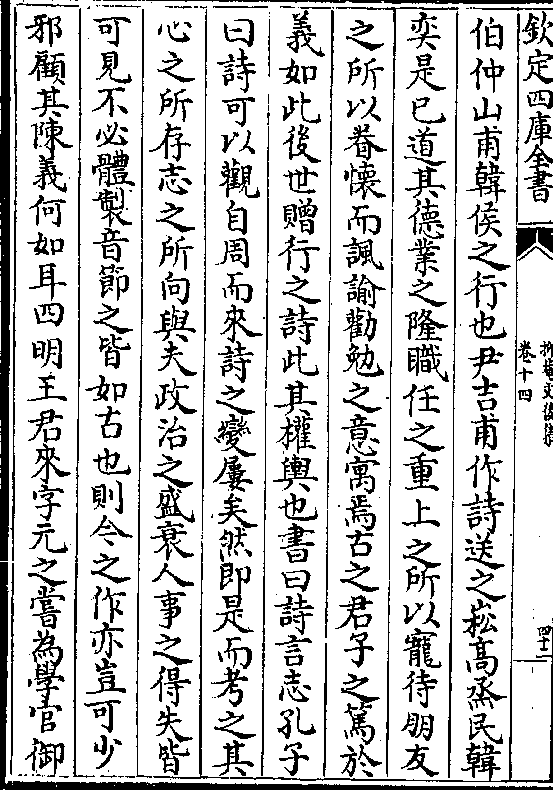 欽定四庫全書
卷十四
伯仲山甫韓侯之行也尹吉甫作詩送之崧髙烝民韓
奕是已道其德業之隆職任之重上之所以寵待朋友
之所以眷懐而諷諭勸勉之意寓焉古之君子之篤於
義如此後世贈行之詩此其權輿也書曰詩言志孔子
曰詩可以觀自周而來詩之變屢矣然即是而考之其
心之所存志之所向與夫政治之盛衰人事之得失皆
可見不必體製音節之皆如古也則今之作亦豈可少
邪顧其陳義何如耳四明王君來字元之嘗為學官御